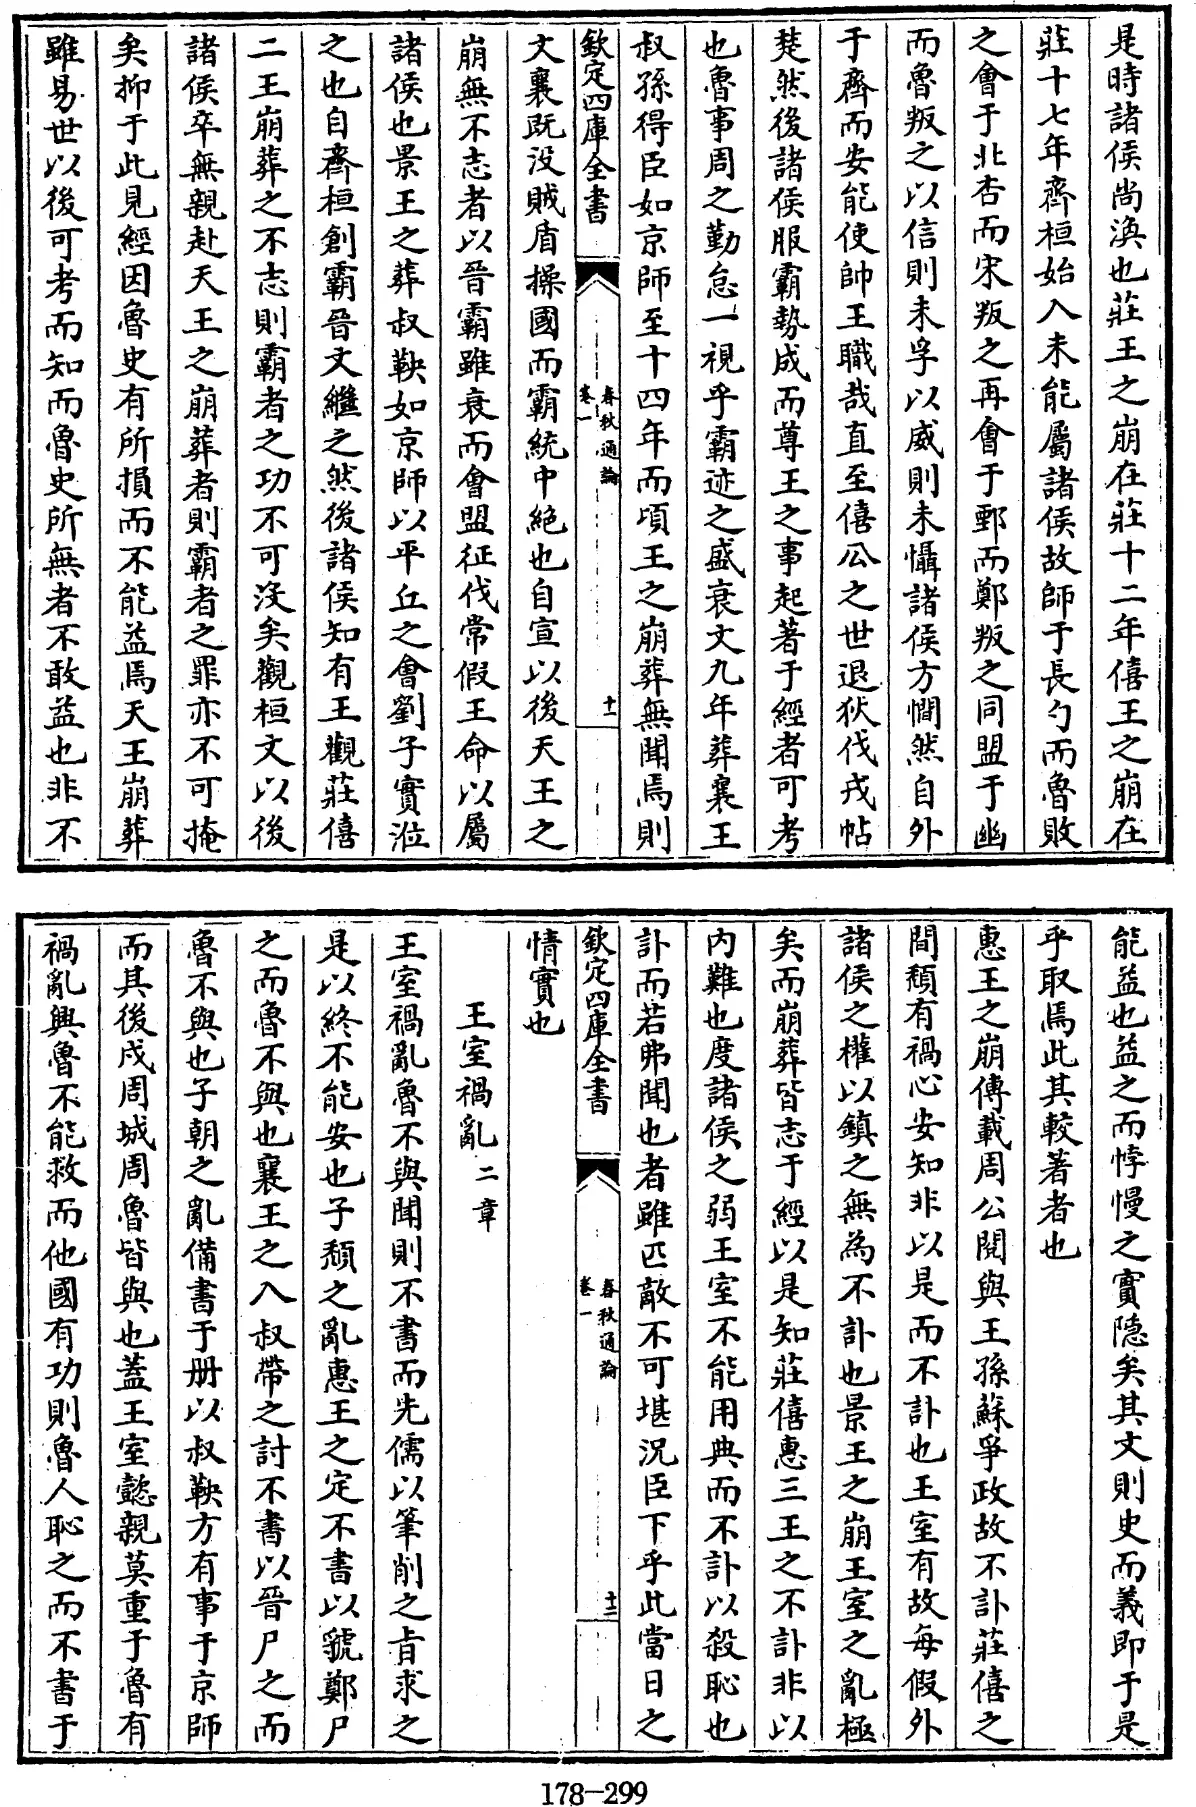 是時諸侯尚渙也莊王之崩在莊十二年僖王之崩在
莊十七年齊桓始入未能屬諸侯故師于長勺而魯敗
之會于北杏而宋叛之再會于鄄而鄭叛之同盟于幽
而魯叛之以信則未孚以威則未懾諸侯方憪然自外
于齊而安能使帥王職哉直至僖公之世退狄伐戎帖
楚然後諸侯服霸勢成而尊王之事起著于經者可考
也魯事周之勤怠一視乎霸迹之盛衰文九年葬襄王
叔孫得臣如京師至十四年而頃王之崩葬無聞焉則
欽定四庫全書
春秋通論
卷一
十一
文襄既没賊盾操國而霸統中絶也自宣以後天王之
崩無不志者以晉霸雖衰而會盟征伐常假王命以屬
諸侯也景王之葬叔鞅如京師以平丘之會劉子實涖
之也自齊桓創霸晉文繼之然後諸侯知有王觀莊僖
二王崩葬之不志則霸者之功不可沒矣觀桓文以後
諸侯卒無親赴天王之崩葬者則霸者之罪亦不可掩
矣抑于此見經因魯史有所損而不能益焉天王崩葬
雖易世以後可考而知而魯史所無者不敢益也非不
能益也益之而悖慢之實隠矣其文則史而義即于是
乎取焉此其較著者也
惠王之崩傳載周公閱與王孫蘇爭政故不訃莊僖之
間頽有禍心安知非以是而不訃也王室有故每假外
諸侯之權以鎮之無為不訃也景王之崩王室之亂極
矣而崩葬皆志于經以是知莊僖惠三王之不訃非以
内難也度諸侯之弱王室不能用典而不訃以殺恥也
訃而若弗聞也者雖匹敵不可堪況臣下乎此當日之
欽定四庫全書
春秋通論
卷一
十二
情實也
王室禍亂二章
王室禍亂魯不與聞則不書而先儒以筆削之㫖求之
是以終不能安也子頽之亂惠王之定不書以虢鄭尸
之而魯不與也襄王之入叔帶之討不書以晉尸之而
魯不與也子朝之亂備書于册以叔鞅方有事于京師
而其後戍周城周魯皆與也蓋王室懿親莫重于魯有
禍亂興魯不能救而他國有功則魯人恥之而不書于
178-299